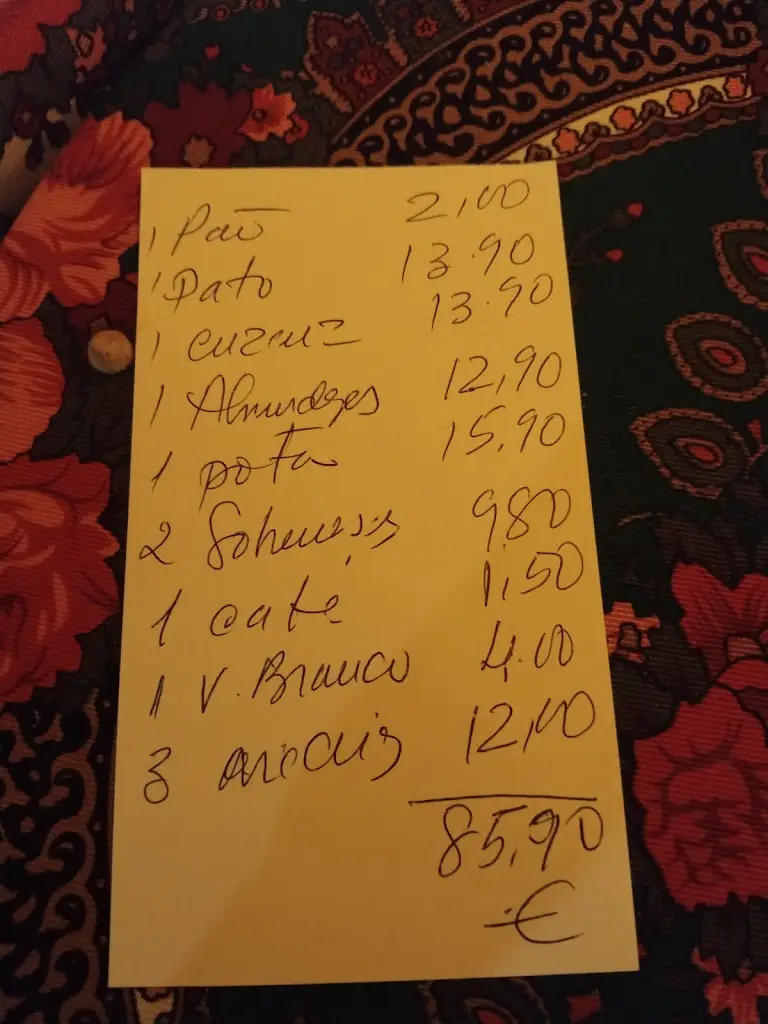 1 Pão 2,00
1 Pato 13.90
1 cuzcuz 13.90
1 12,90
1 pota 15,90
2 Sobremesas 9,80
1 café 1,50
1 V. Branco 4,00
3 12,00
85,90
€